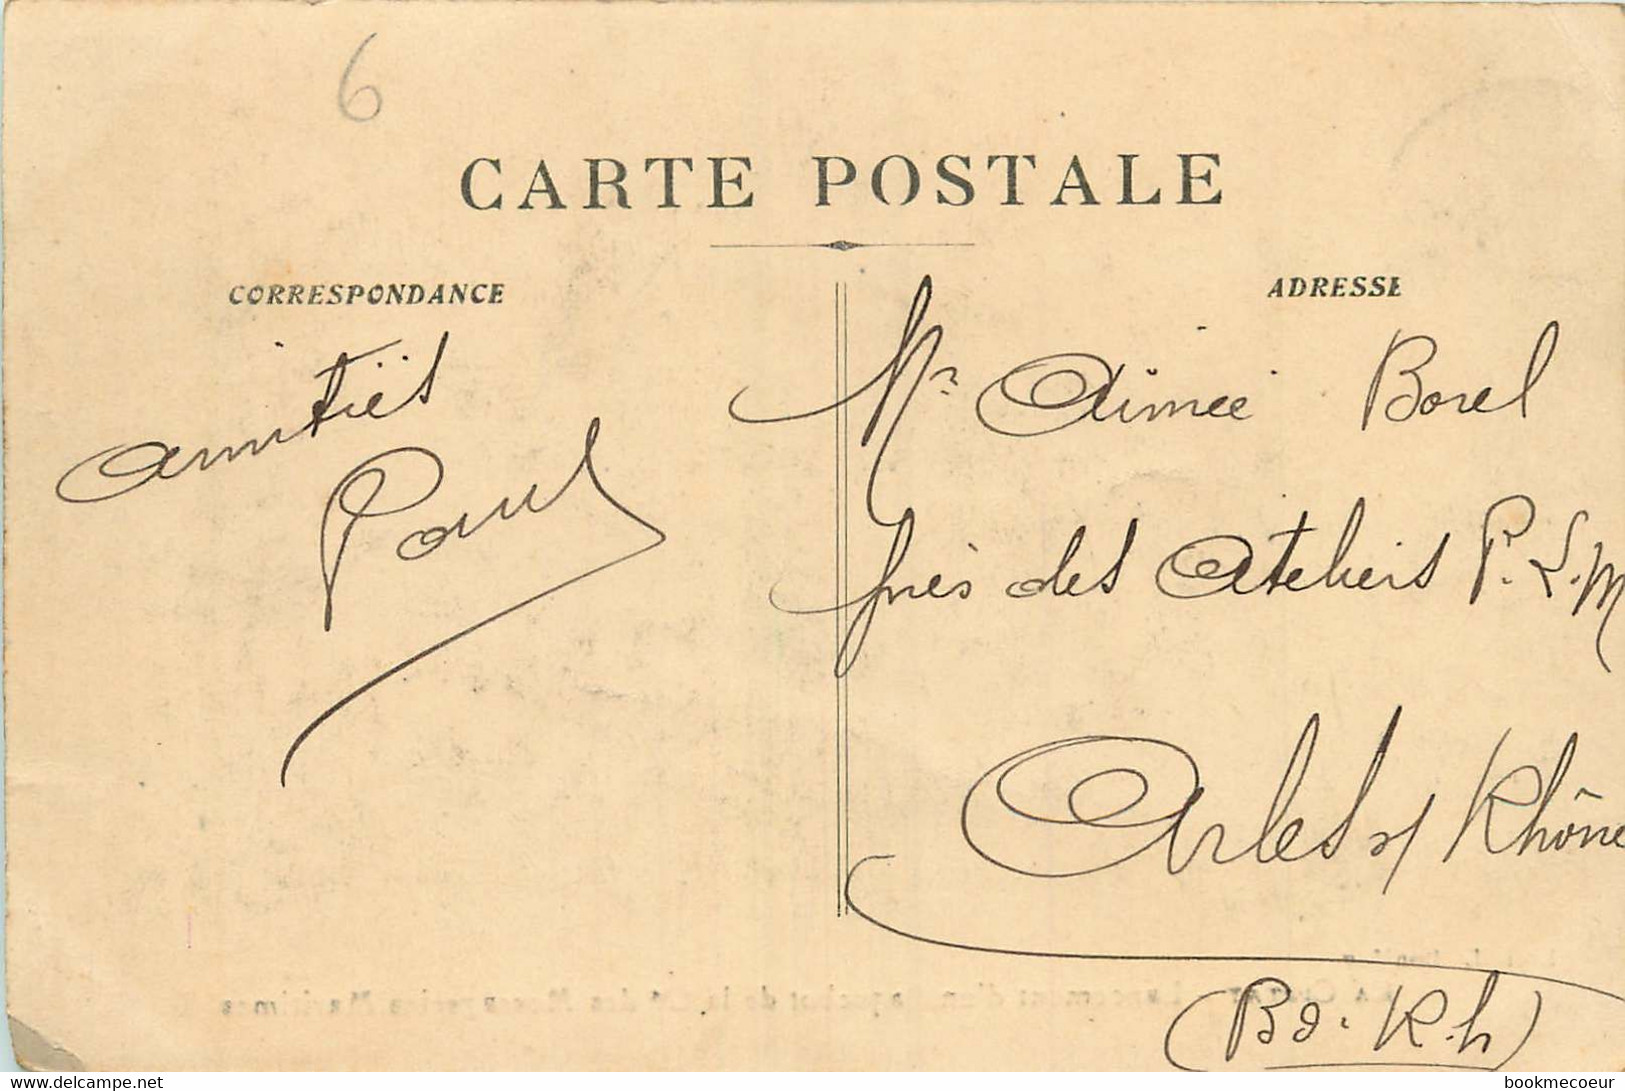 6
CARTE POSTALE
CORRESPONDANCE
ADRESSE
amitiés
Paul
Mr Aimée Borel
près des Ateliers P.L.M
Arles s/ Rhône
(Bd. R.h)
LA CIOTAT - Lancement d'un Paquebot de la Cie des Messageries Maritimes
www.delcampe.net
bookmecoeur